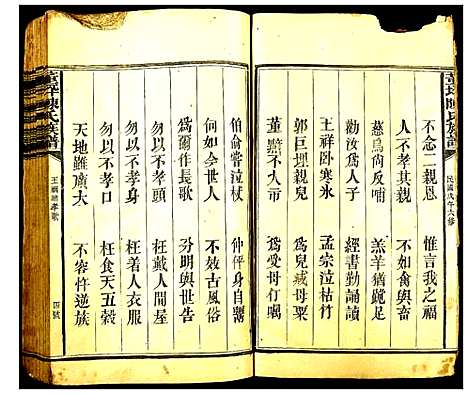 董坪陳氏族譜
民國戊午六修
不念二親恩　惟言我之福
人不孝其親　不如禽與畜
慈烏尚反哺　羔羊猶跪足
勸汝為人子　經書勤誦讀
王祥卧寒氷　孟宗泣枯竹
郭巨埋親兒　為兒減母粟
董黯不大市　為受母打喝
伯俞嘗泣杖　仲尹身自鬻
何如今世人　不效古風俗
為爾作長歌　分明與世告
勿以不孝身　枉着人衣服
勿以不孝身　枉戴人間屋
勿以不孝口　枉食天五穀
天地雖廣大　不容忤逆族
董坪陳氏族譜
王剛勸孝歌
四號